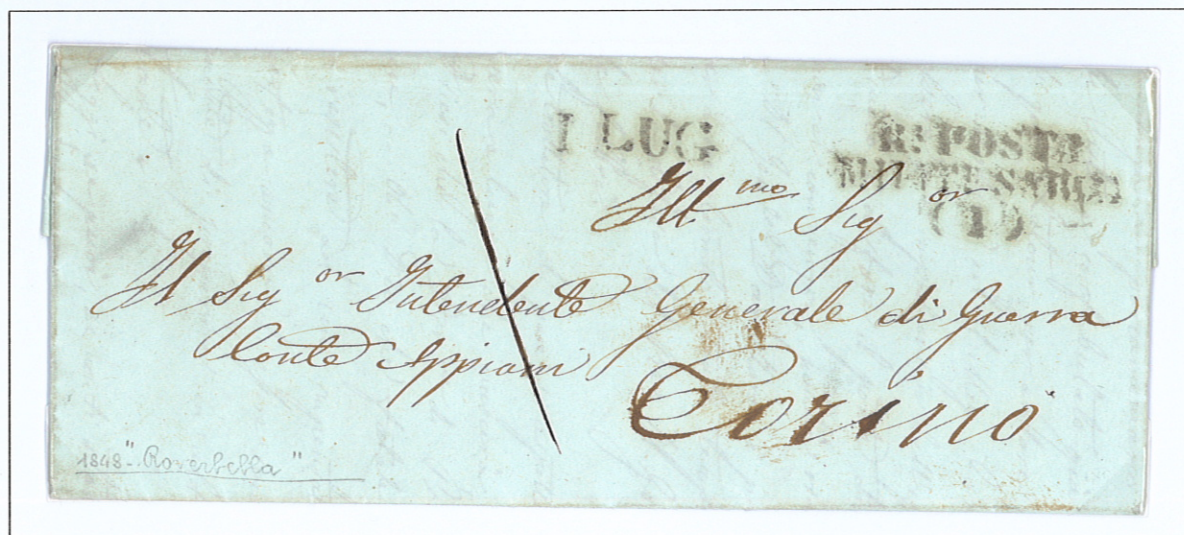 1 LUG
R. POSTA
MILITRE SARDA
(1)
Ill mo Sig or
Il Sig or Intendente Generale di Guerra
Conte Appiani
Torino
1848 - "Roverbella"